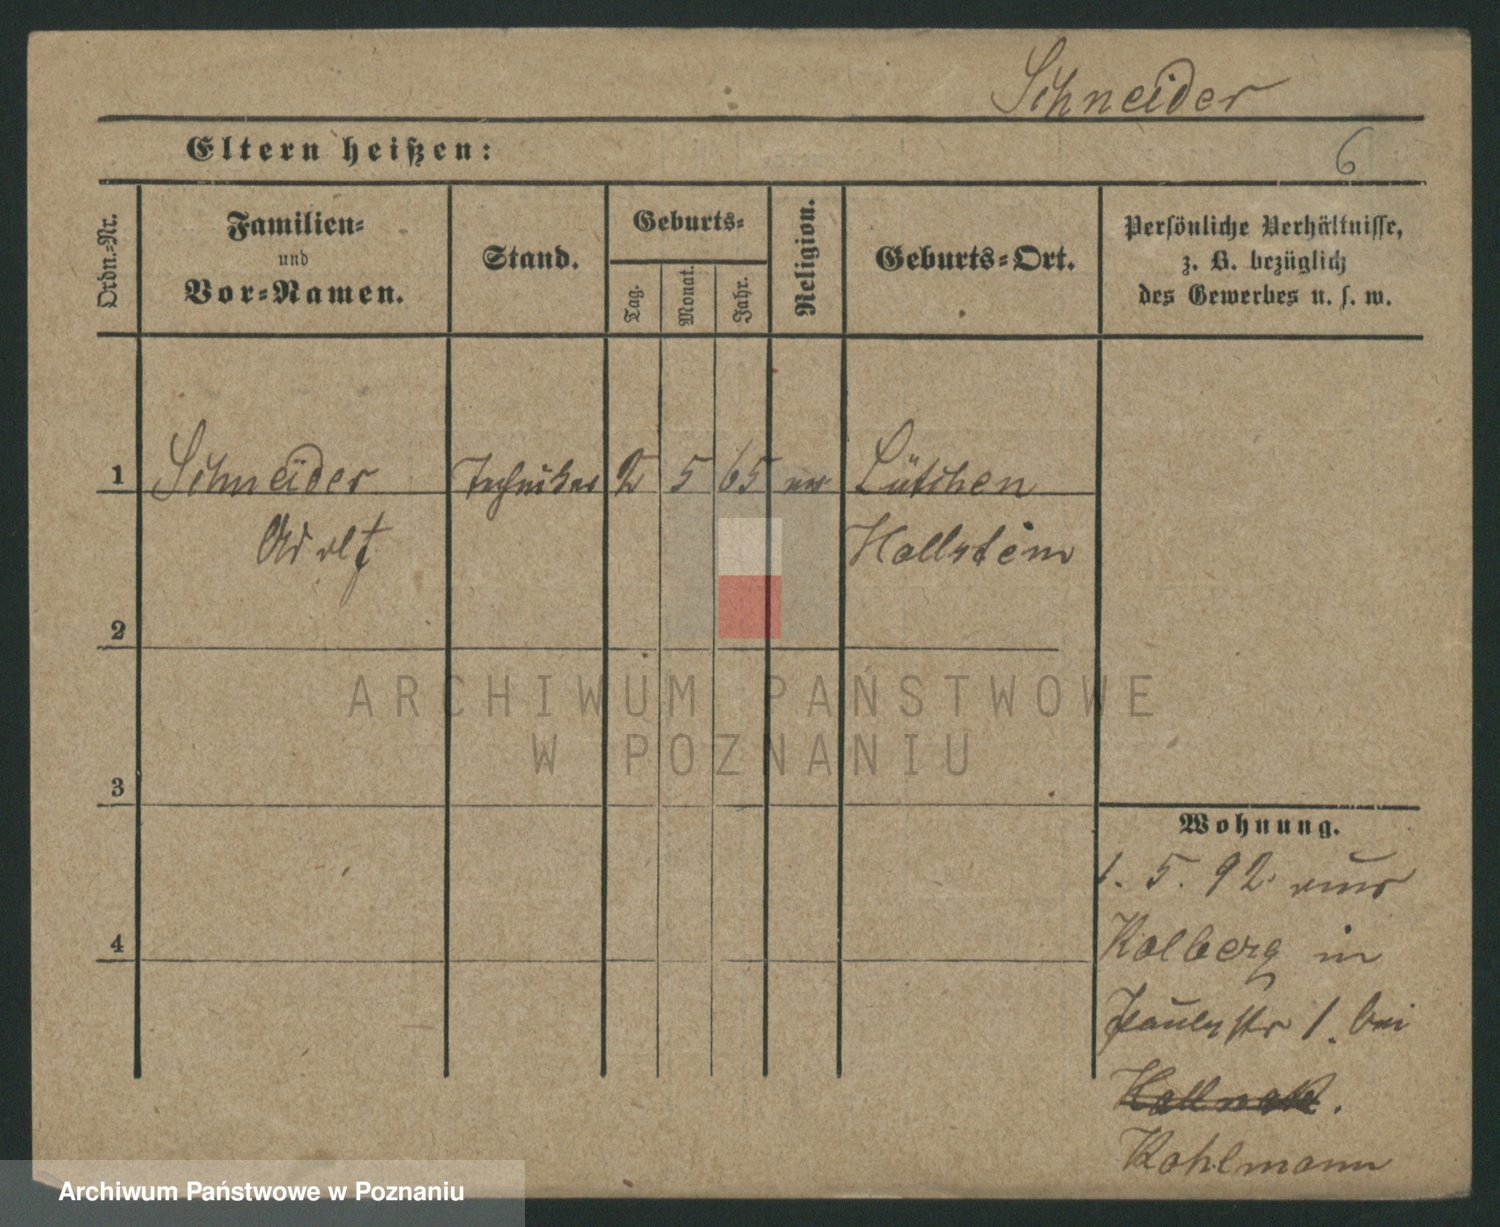 Schneider
Eltern heißen:
6
Ordn.-Nr.
Familien-
und
Vor-Namen.
Stand.
Geburts-
Tag.
Monat.
Jahr.
Religion.
Geburts-Ort.
Persönliche Verhältnisse,
z. B. bezüglich
des Gewerbes u. s. w.
1 Schneider Techniker 2 5 65 ev Lütchen
Adolf Hollstein
2
3
4
Wohnung.
1. 5. 92 aus
Kolberg in
Paulystr 1. bei
Kohlmann
ARCHIWUM PAŃSTWOWE
W POZNANIU
Archiwum Państwowe w Poznaniu